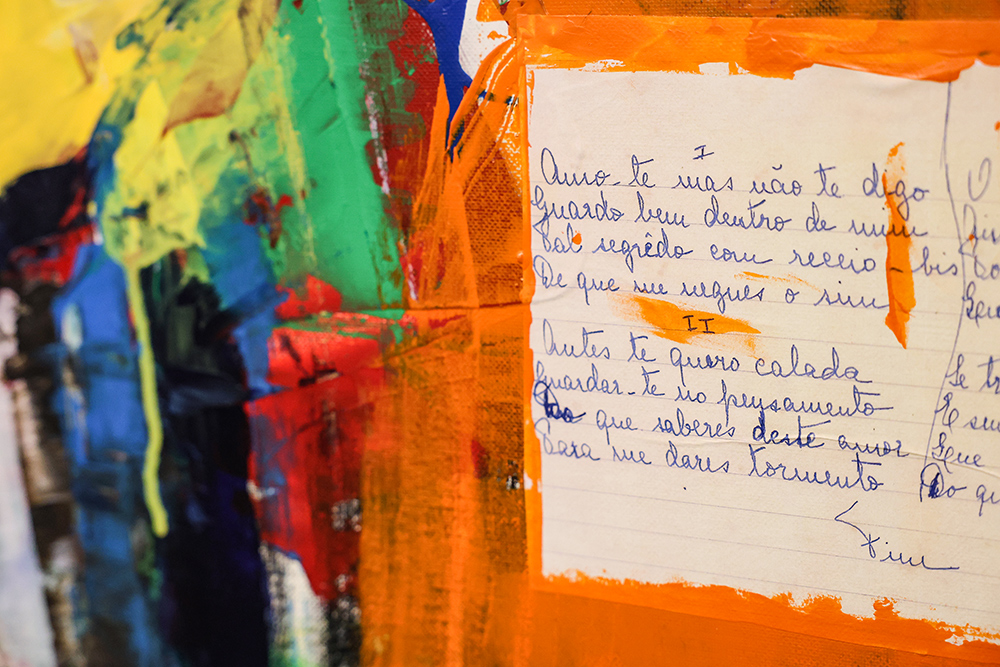 I
Amo-te mas não te digo
Guardo bem dentro de mim
Tal segrêdo com receio - bis
De que me negues o sim
II
Antes te quero calada
Guardar-te no pensamento
Do que saberes deste amor
Para me dares tormento
Fim
O
Se
E
Do